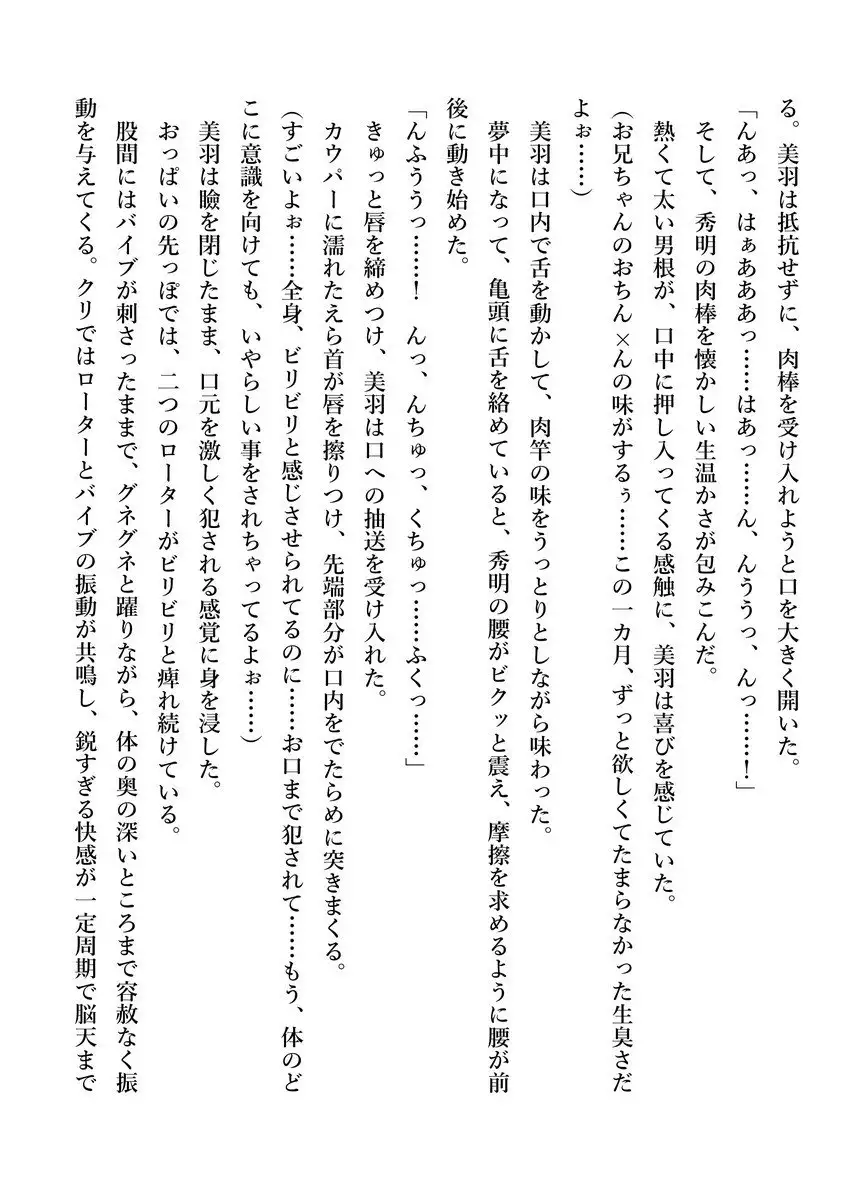 る。美羽は抵抗せずに、肉棒を受け入れようと口を大きく開いた。
「んあっ、はぁあああっ……はあっ……ん、んううっ、んっ……！」
そして、秀明の肉棒を懐かしい生温かさが包みこんだ。
熱くて太い男根が、口中に押し入ってくる感触に、美羽は喜びを感じていた。
(お兄ちゃんのおちん×んの味がするぅ……この一カ月、ずっと欲しくてたまらなかった生臭さだ
よぉ……)
美羽は口内で舌を動かして、肉竿の味をうっとりとしながら味わった。
夢中になって、亀頭に舌を絡めていると、秀明の腰がビクッと震え、摩擦を求めるように腰が前
後に動き始めた。
「んふううっ……！　んっ、んちゅっ、くちゅっ……ふくっ……」
きゅっと唇を締めつけ、美羽は口への抽送を受け入れた。
カウパーに濡れたえら首が唇を擦りつけ、先端部分が口内をでたらめに突きまくる。
(すごいよぉ……全身、ビリビリと感じさせられてるのに……お口まで犯されて……もう、体のど
こに意識を向けても、いやらしい事をされちゃってるよぉ……)
美羽は瞼を閉じたまま、口元を激しく犯される感覚に身を浸した。
おっぱいの先っぽでは、二つのローターがビリビリと痺れ続けている。
股間にはバイブが刺さったままで、グネグネと躍りながら、体の奥の深いところまで容赦なく振
動を与えてくる。クリではローターとバイブの振動が共鳴し、鋭すぎる快感が一定周期で脳天まで